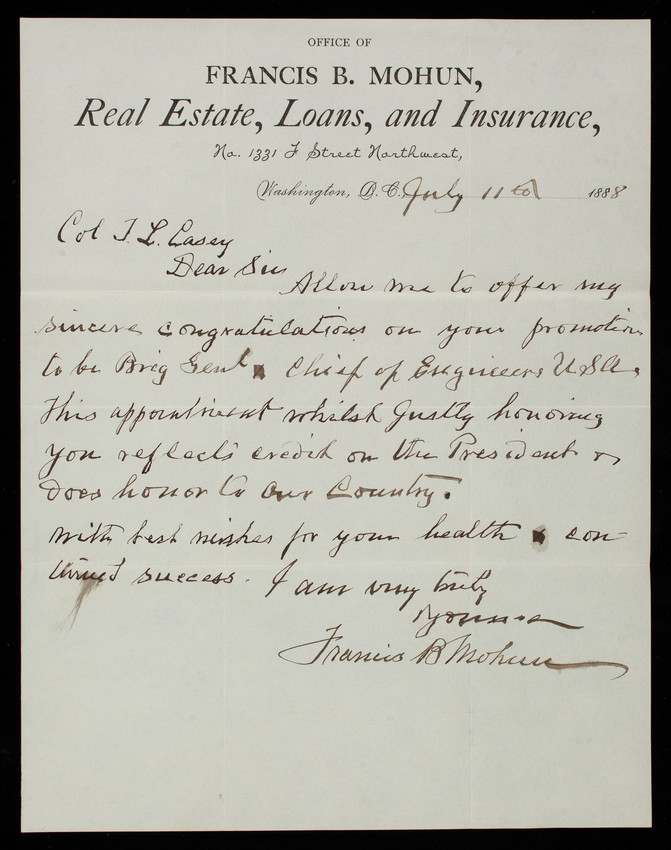 OFFICE OF
FRANCIS B. MOHUN,
Real Estate, Loans, and Insurance,
No. 1331 F Street Northwest,
Washington, D. C., July 11th 1888
Col T. L. Casey
Dear Sir
Allow me to offer my
sincere congratulations on your promotion
to be Brig Genl & Chief of Engineers USA.
This appointment whilst justly honoring
you reflects credit on the President &
Does honor to Our Country.
With best wishes for your health & con
tinued success. I am very truly
Yours
Francis B Mohun